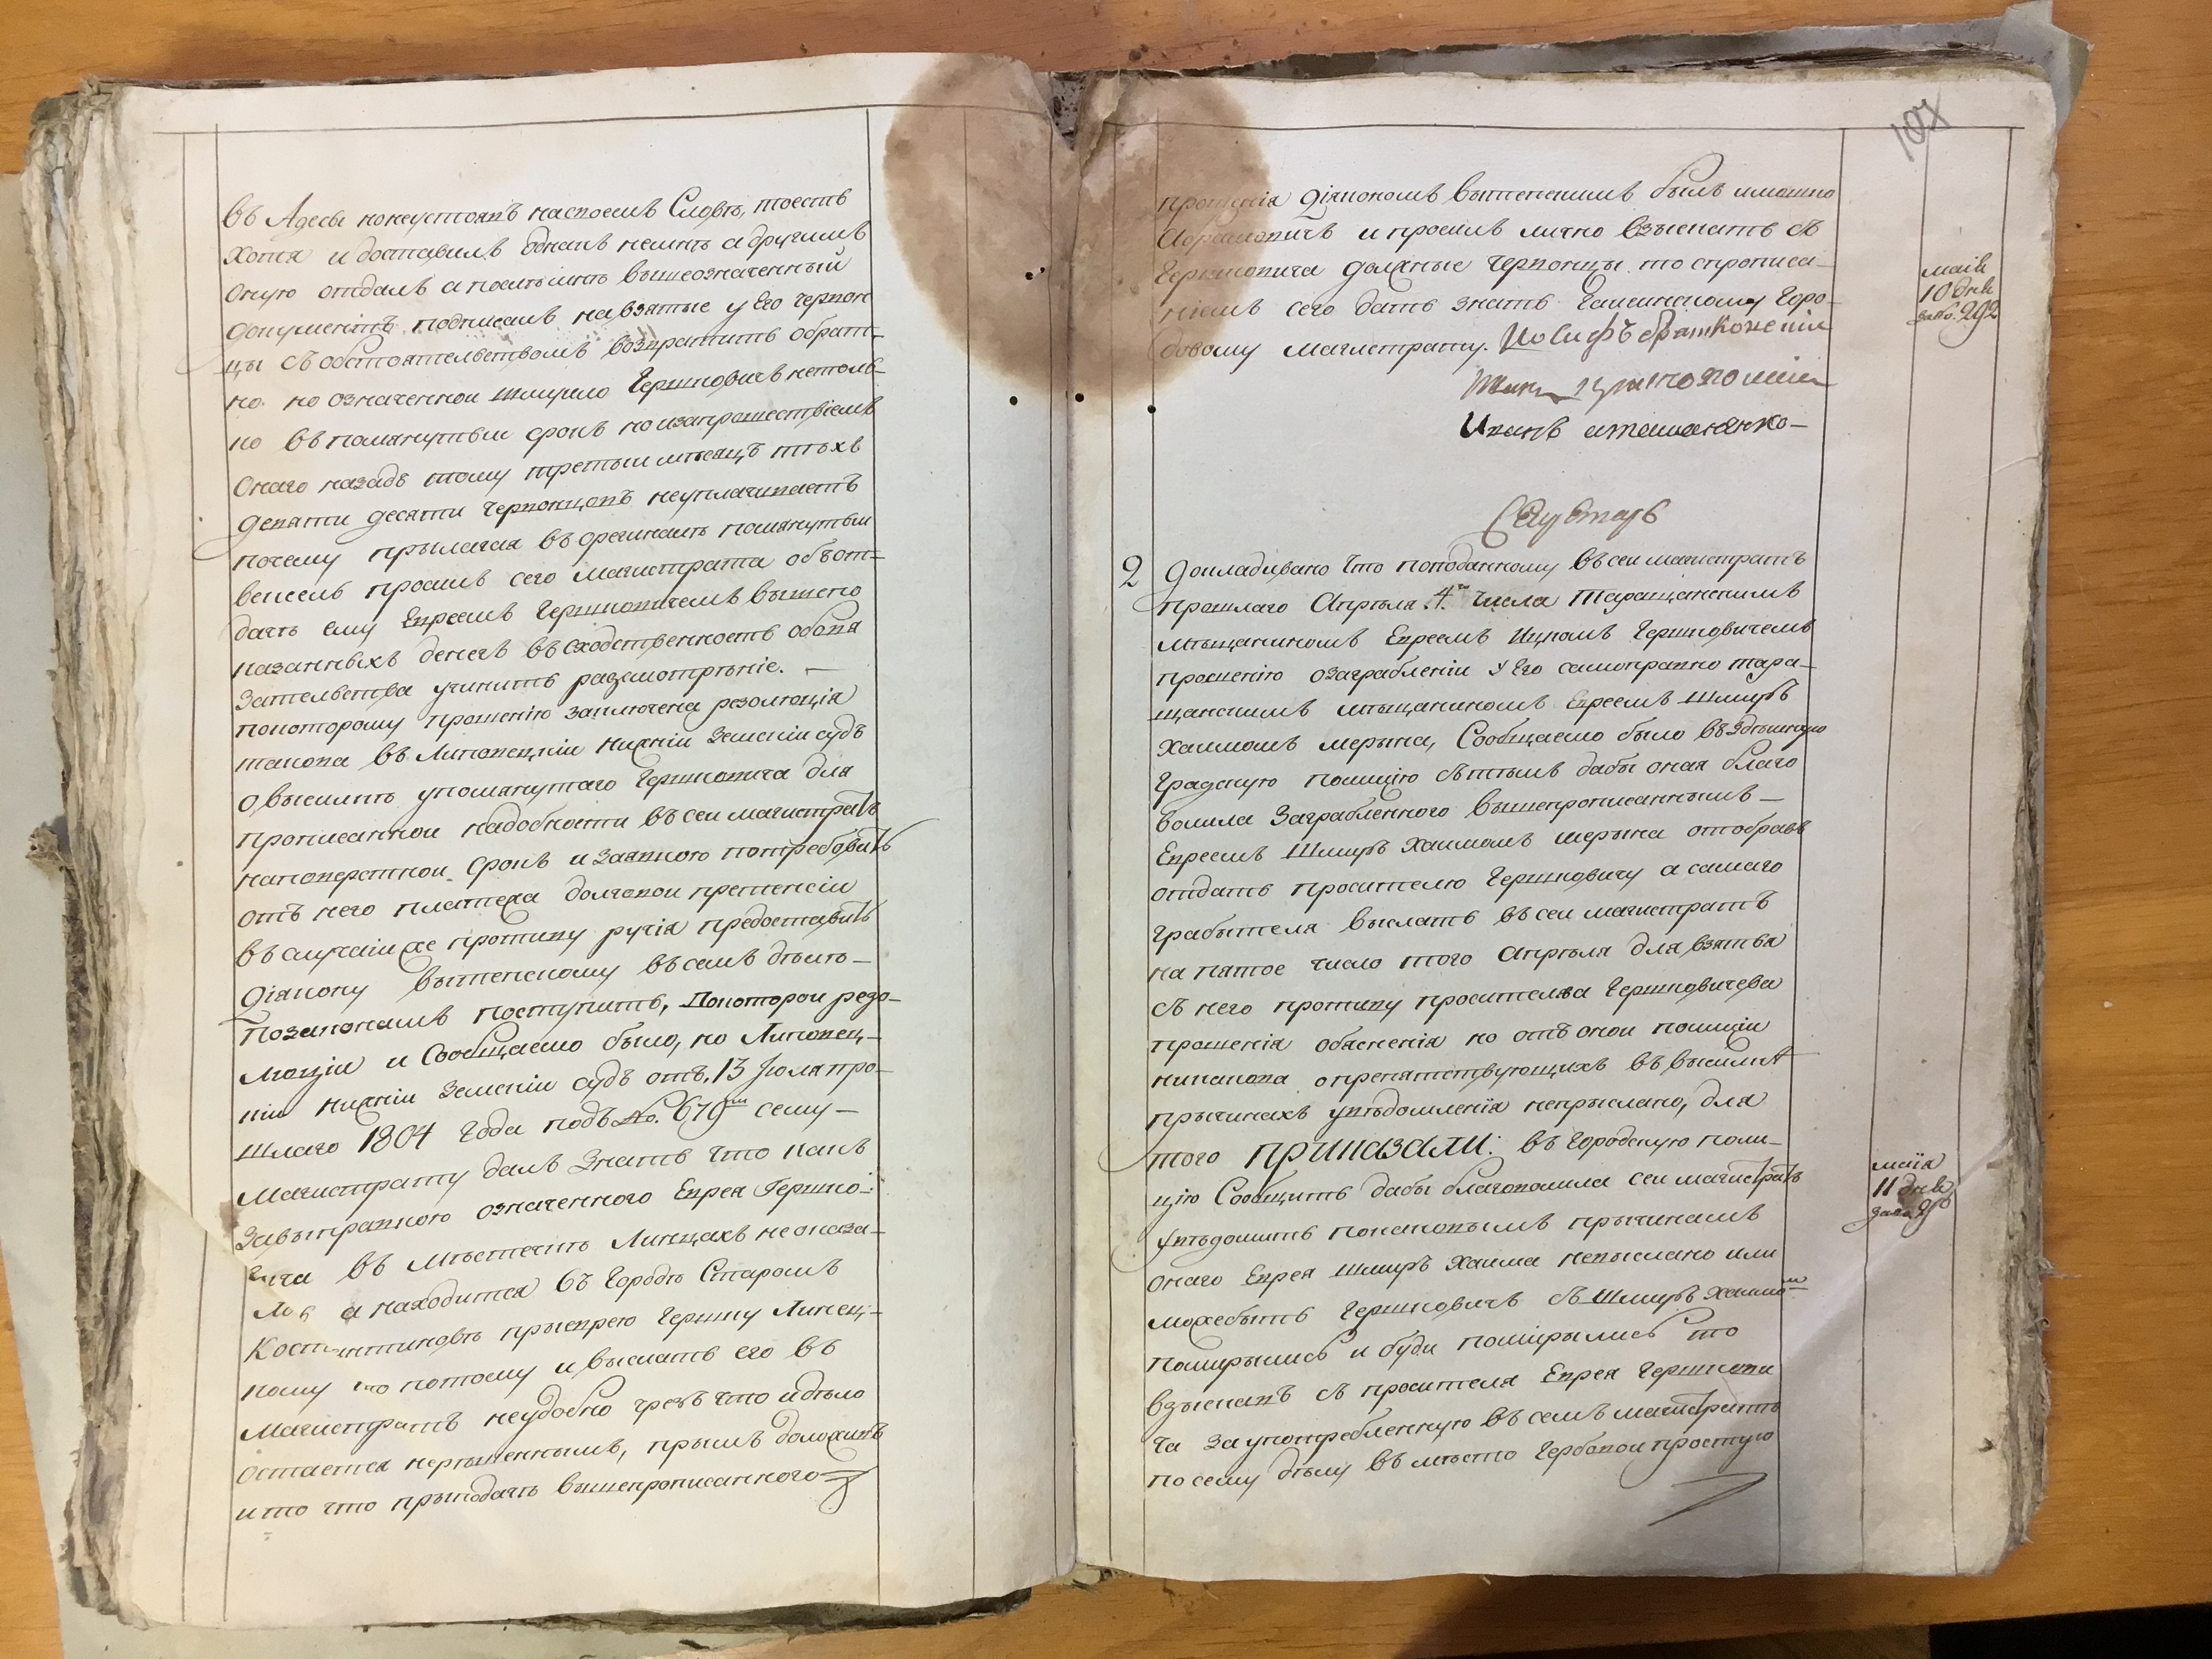 въ Адесы но неустоявъ насвоемъ Словѣ, тоесть
хотя и доставилъ однакъ неимѣ а другимъ
оную отдалъ а посему вышеозначенный
документъ подписалъ на взятые у Его червон
цы съ обстоятельствомъ возвратить обрат-
но. но означенной Шмуило Гершковичъ нетоль-
ко въ помянутыи срокъ но изапрошествіемъ
Онаго назадъ тому третыи мѣсяцъ тѣхъ
девяти десяти червонцовъ неуплачиваетъ
почему прылагая въ орегиналѣ помянутыи
вексель просилъ сего магистрата объ от-
дачѣ ему Евреемъ Гершковичемъ вышепо
казанныхъ денегъ въ сходственность обова
зательства учинить разсмотрѣніе. —
покоторому прошенію заключена резолюція
такова въ Липовецкіи нижніи Земскіи судъ
о высилкѣ упомянутаго Гершковича для
прописанной надобности въ сеи магистратъ
наповерстнои срокъ и заявного потребовать
отъ него платежа долговои претенсіи
въ случаи же противу рѵчія предоставить
діякону вытепскому въ семъ дѣлѣ —
позаконамъ поступить, Покоторои резо-
люціи и Сообщаемо было, но Липовец-
кіи нижніи Земскіи судъ отъ 13 Іюля про-
шлаго 1804 года подъ No. 679мъ сему —
Магистрату далъ знать что какъ
Завытравкою означенного Еврея Гершко-
вича въ мѣстечкѣ Липцахъ неоказа-
лось а находится въ городѣ Старомъ
Константиновѣ прыеврею Гершку Липец-
кому то потому и выслать его въ
Магистратъ неудобно чрезъ что идѣло
остается нерѣшеннымъ, прымъ доложивъ
и то что прыподачѣ вышепрописанного
107
прошенія діякономъ вытепскимъ былъ имянно
Абрамовичъ и просилъ лично взыскать съ
Гершковича должные червонцы то спрописа-
ніемъ сего дать знать Гаисинскому Горо-
довому магистрату. Іосифъ
Иванъ
маія
10 дня
за No. 292
2 Докладывано что поподанному въ сеи магистратъ
прошлаго Апрѣля 4го числа Таращанскимъ
мѣщаниномъ Евреемъ Ицкомъ Гершковичемъ
прошенію о заграбленіи у Его самоправно тара-
щанскимъ мѣщаниномъ Евреемъ Шмиръ
Хаимомъ мерына, Сообщаемо было въ здѣшнюю
Градскую полицію сътѣмъ дабы оная благо
волила Заграбленного вышепрописаннымъ —
Евреемъ Шмиръ Хаимомъ мерына отобравъ
отдать просителю Гершковичу а самаго
грабытеля выслать въ сеи магистратъ
на пятое число того Апрѣля для взятья
съ него противу просителя Гершковичева
прошенія обясненія но отъ онои полиціи
никакова опрепятствующихъ въ высилкѣ
прычинахъ увѣдомленія непрыслано, для
того приказали: въ городскую поли-
цію Сообщить дабы благоволила сеи магистратъ
увѣдомить покаковымъ прычинамъ
онаго Еврея Шмиръ Хаима невыслано или
можебыть Гершковичъ съ Шмиръ Хаимомъ
помирылись и буди помірылись то
взыскавъ съ просителя Еврея Гершкови
ча за употребленную въ семъ магистратѣ
по сему дѣлу въ мѣсто гербовои простую
маія
11 дня